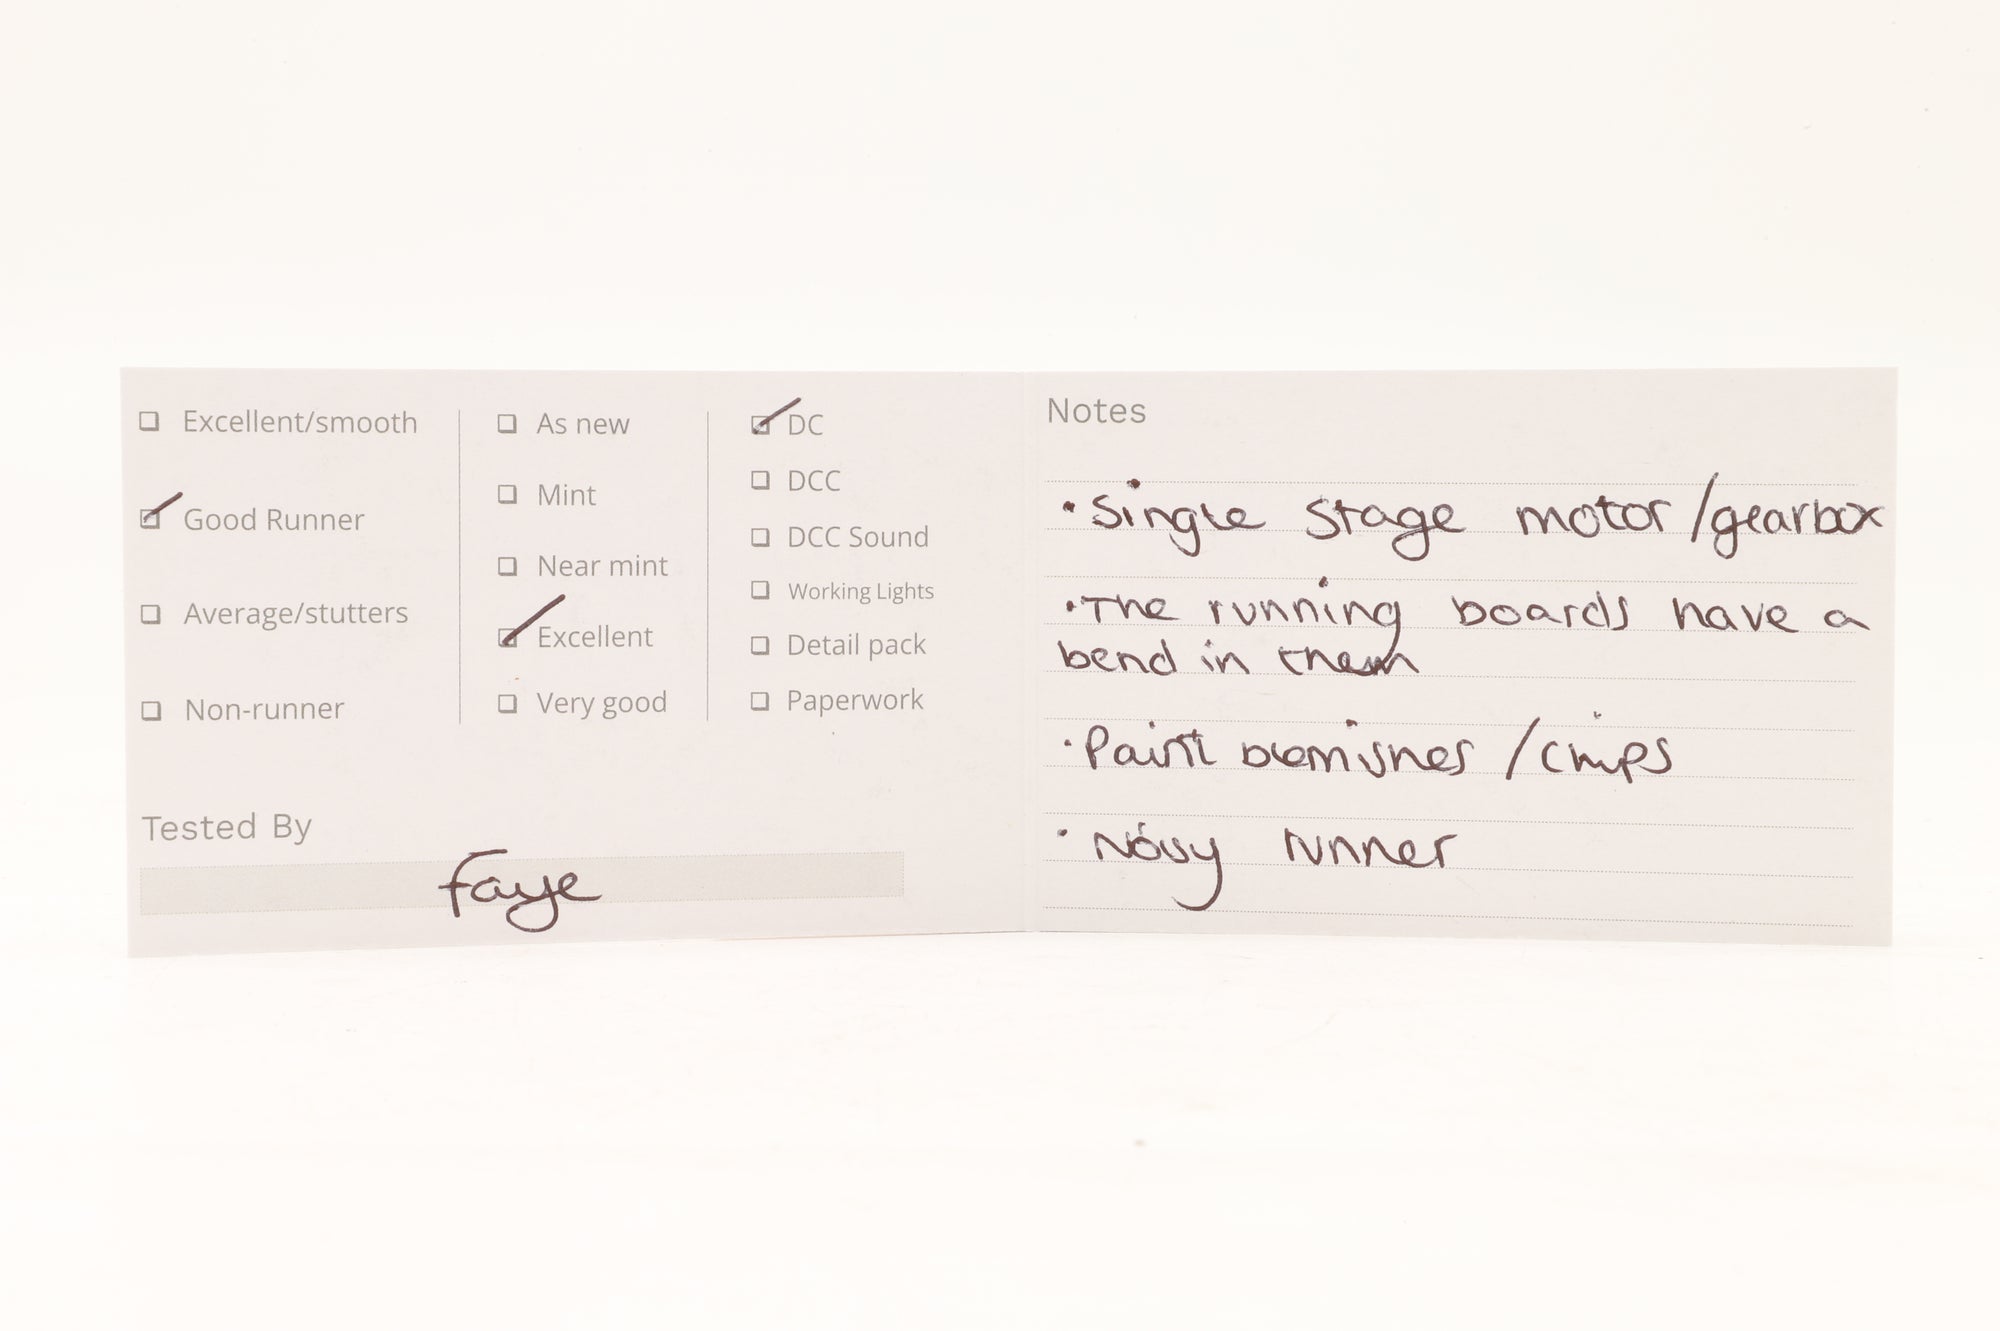 Excellent/smooth
Good Runner
Average/stutters
Non-runner
As new
Mint
Near mint
Excellent
Very good
DC
DCC
DCC Sound
Working Lights
Detail pack
Paperwork
Tested By
Faye
Notes
• Single stage motor/gearbox
• The running boards have a
bend in them
• Paint blemishes / chips
• Noisy runner